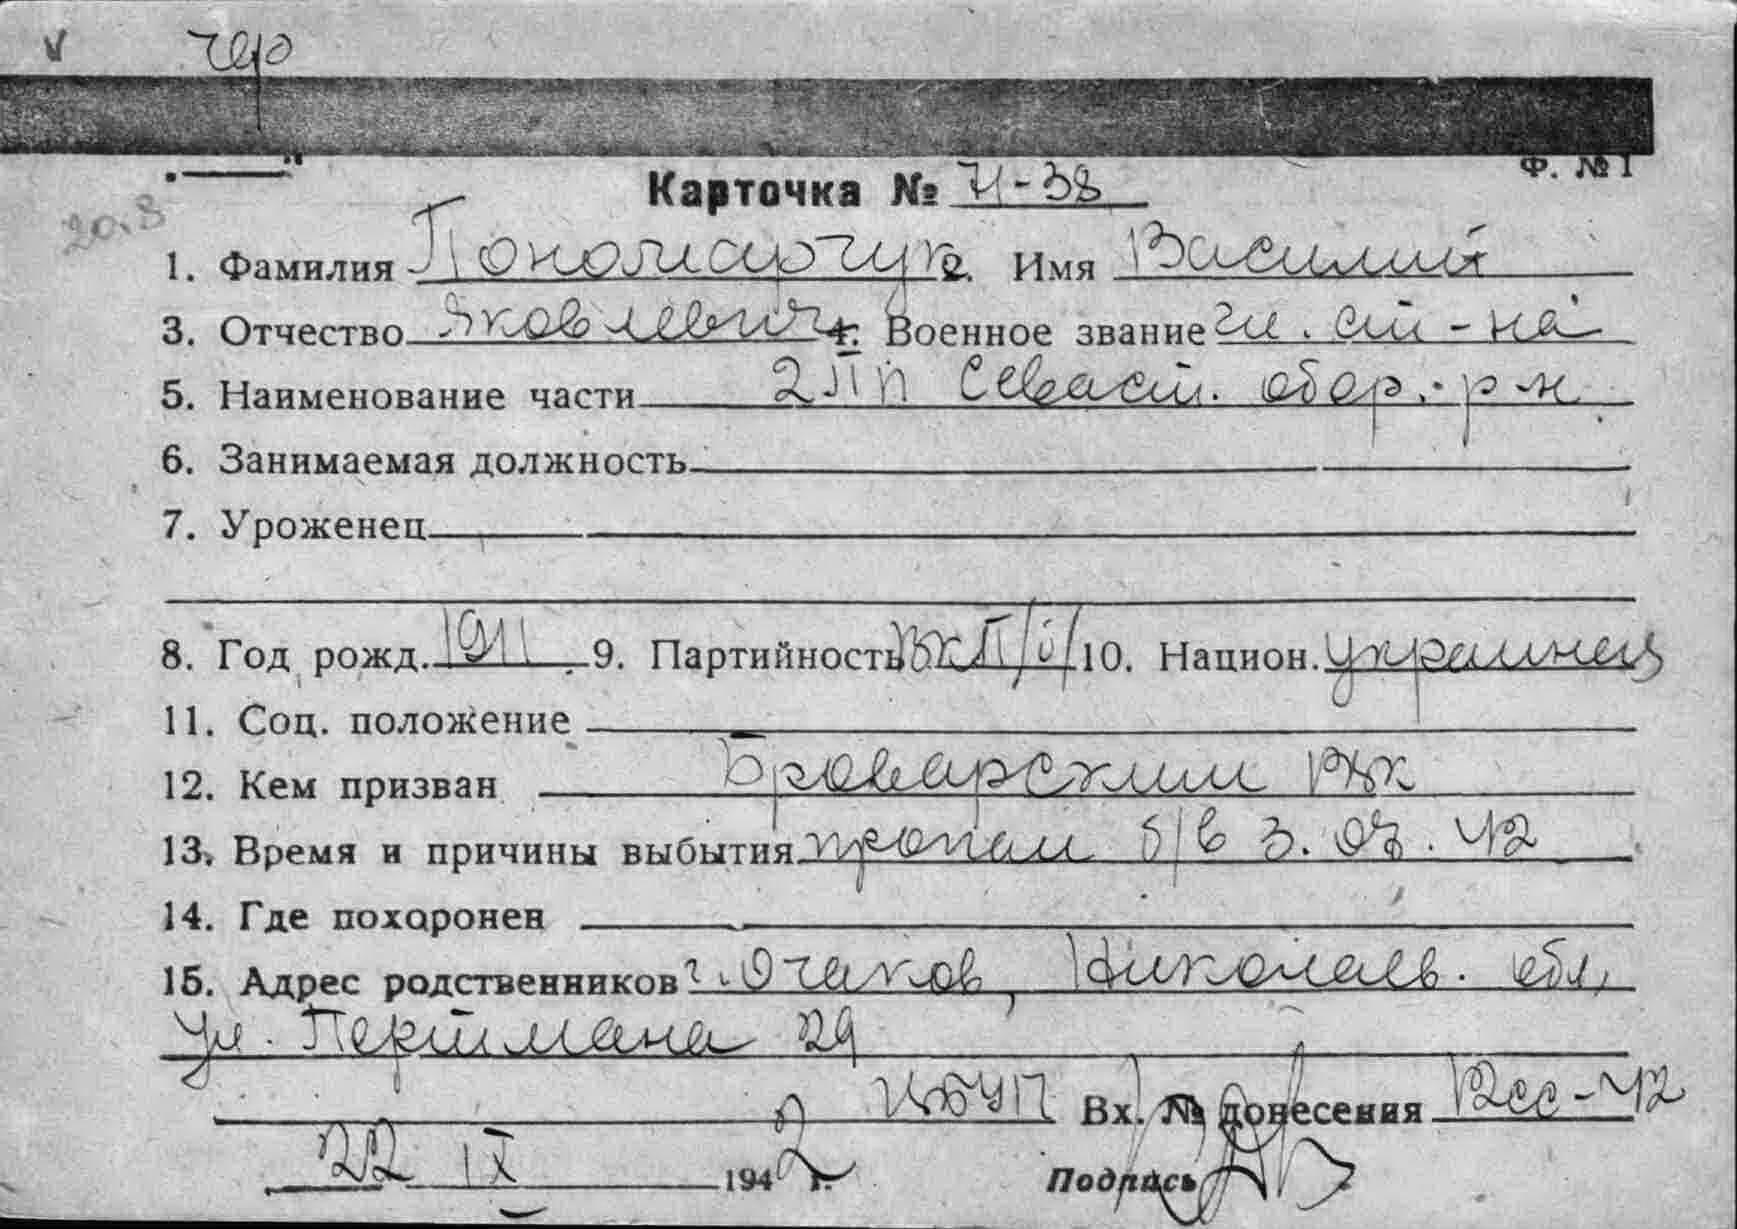 чф
Ф. № 1
Карточка № 71-38
20.8
1. Фамилия Пономарчук 2. Имя Василий
3. Отчество Яковлевич 4. Военное звание гл. ст-на
5. Наименование части 2ПП Севаст. обор. р-н
6. Занимаемая должность
7. Уроженец
8. Год рожд. 1911 9. Партийность ВКП/б/ 10. Национ. украинец
11. Соц. положение
12. Кем призван Броварским РВК
13. Время и причины выбытия пропал б/в 3.07.42
14. Где похоронен
15. Адрес родственников г. Очаков, Николаев. обл,
ул. Пертмана 29
Вх. № донесения 12сс-42
22 IX 1942 г. Подпись